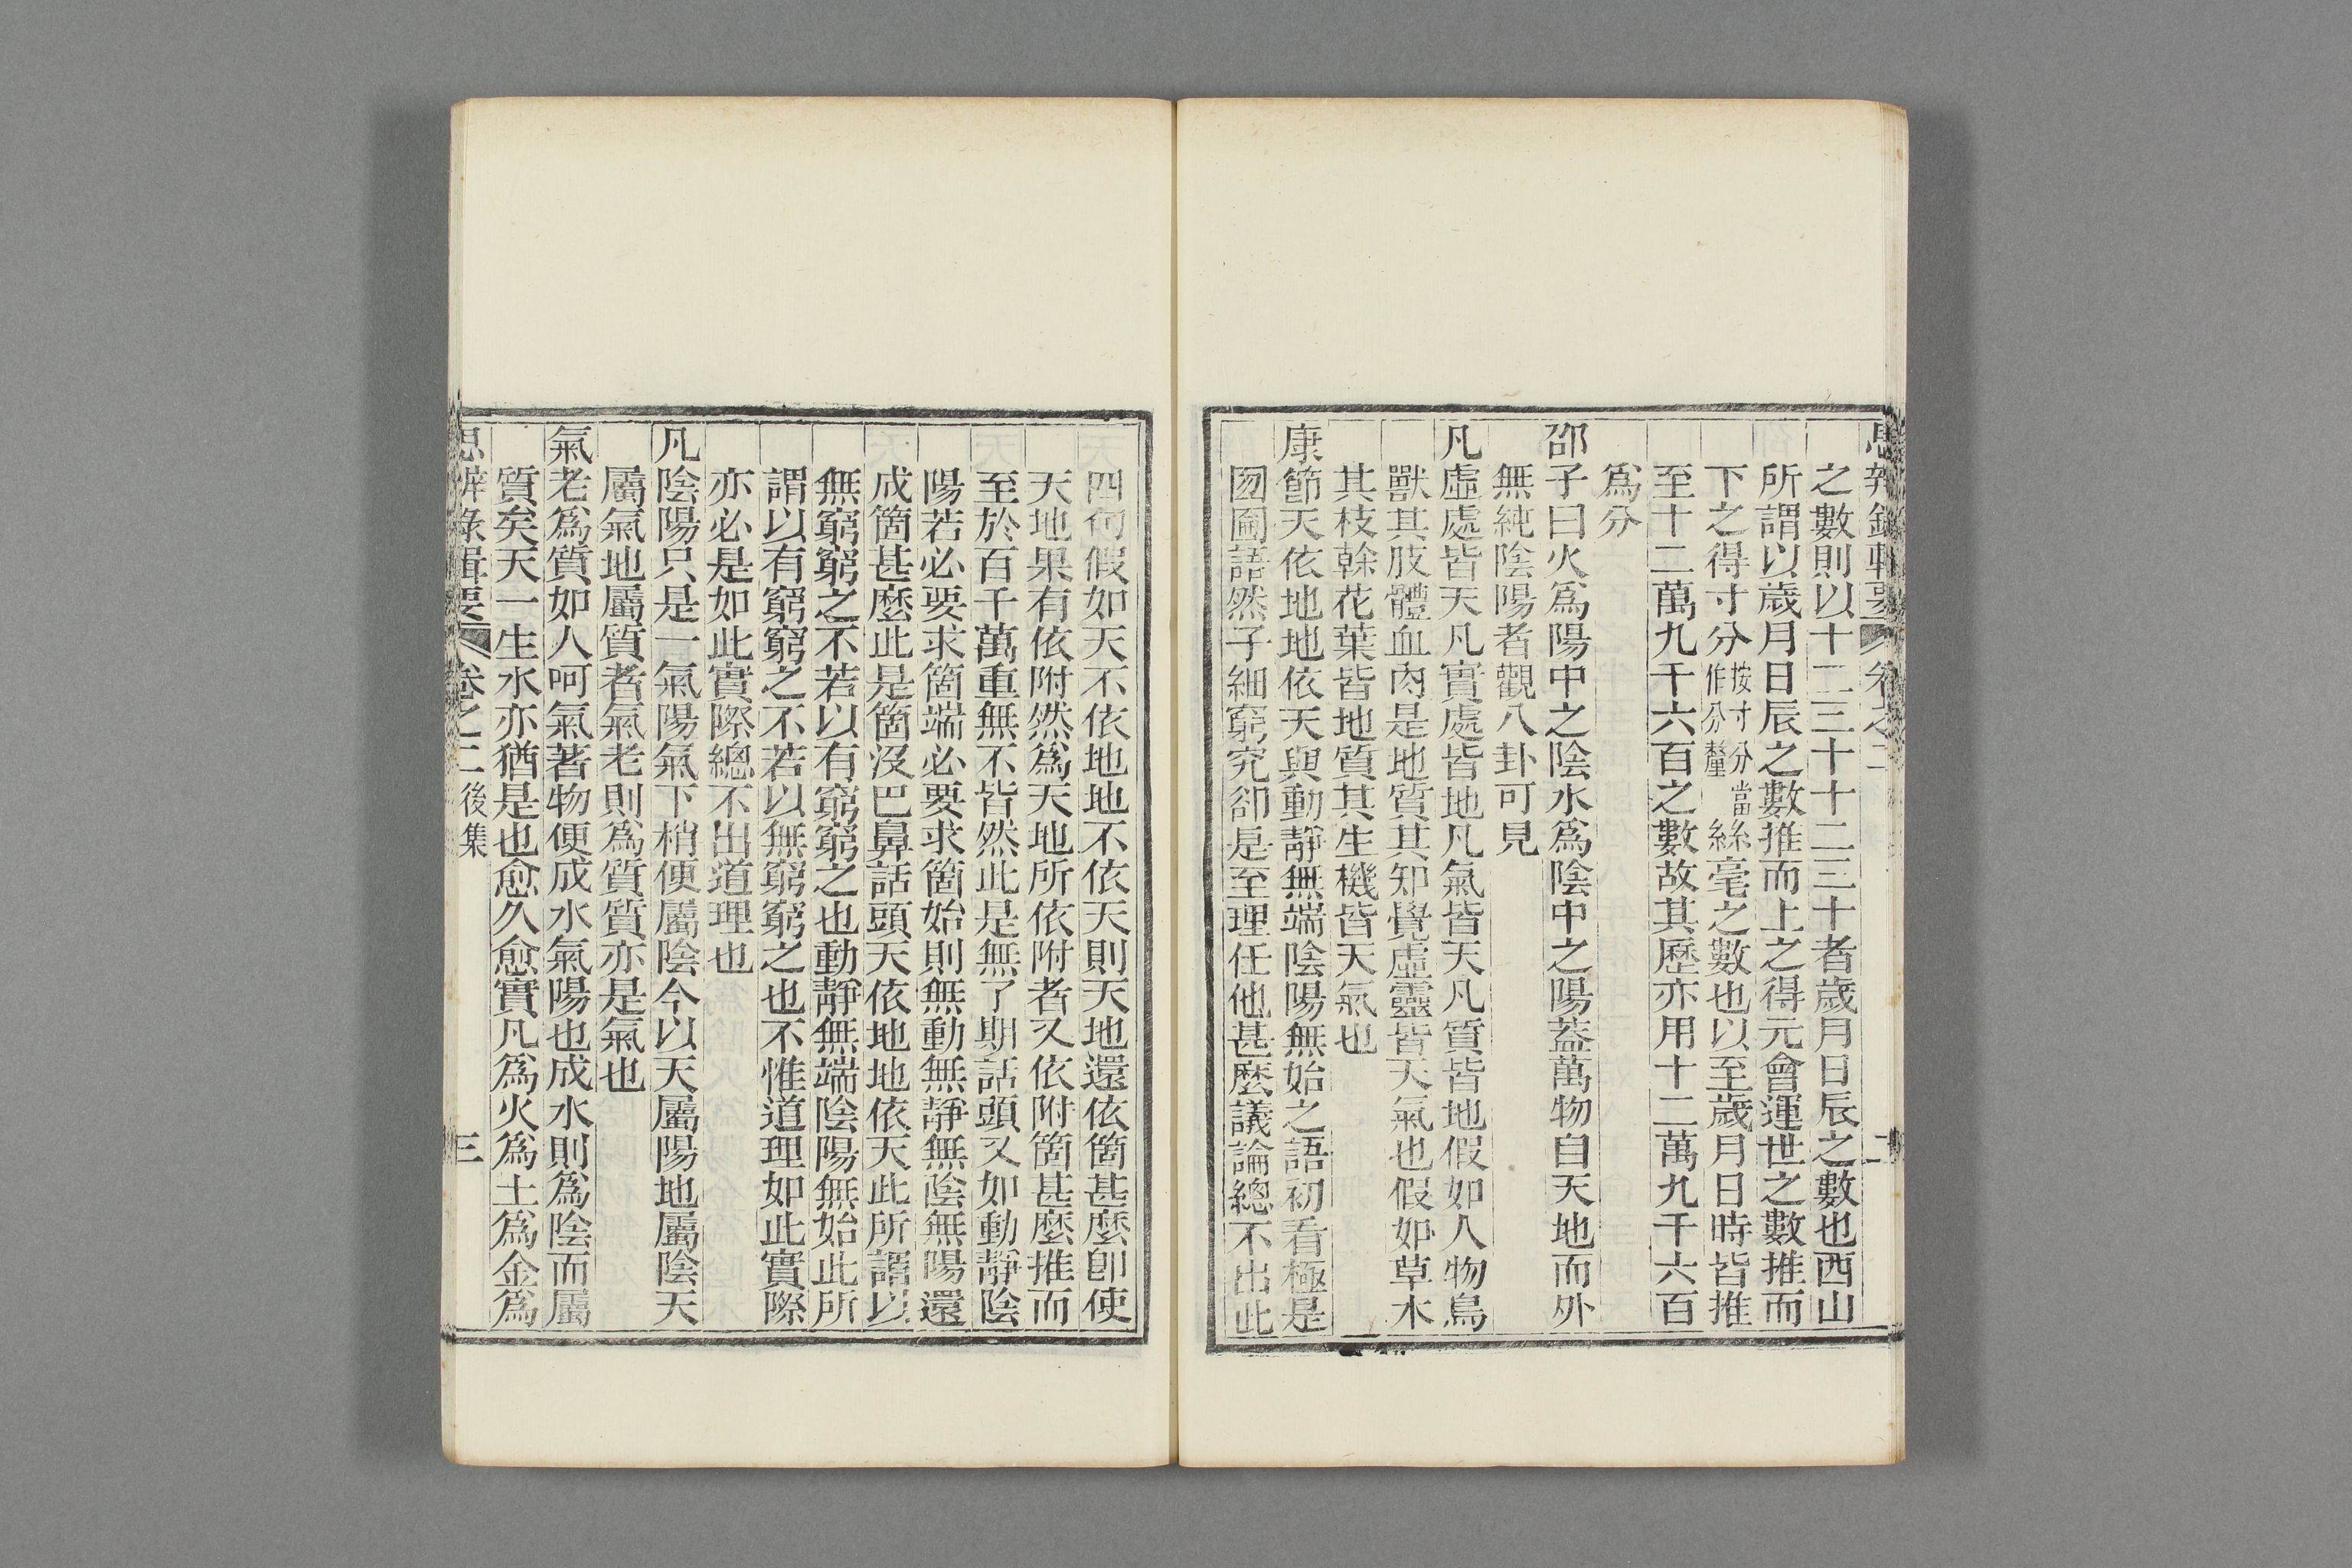 思辨錄輯要 卷之二 二
之數則以十二三十十二三十者歲月日辰之數也西山
所謂以歲月日辰之數推而上之得元會運世之數推而
下之得寸分按寸分當作分釐絲毫之數也以至歲月日時皆推
至十二萬九千六百之數故其歷亦用十二萬九千六百
爲分
邵子曰火爲陽中之陰水爲陰中之陽葢萬物自天地而外
無純陰陽者觀八卦可見
凡虛處皆天凡實處皆地凡氣皆天凡質皆地假如人物鳥
獸其肢體血肉是地質其知覺虛靈皆天氣也假如草木
其枝榦花葉皆地質其生機皆天氣也
康節天依地地依天與動靜無端陰陽無始之語初看極是
囫圇語然子細窮究卻是至理任他甚麼議論總不出此
四句假如天不依地地不依天則天地還依箇甚麼卽使
天地果有依附然爲天地所依附者又依附箇甚麼推而
至於百千萬重無不皆然此是無了期話頭又如動靜陰
陽若必要求箇端必要求箇始則無動無靜無陰無陽還
成箇甚麼此是箇沒巴鼻話頭天依地地依天此所謂以
無窮窮之不若以有窮窮之也動靜無端陰陽無始此所
謂以有窮窮之不若以無窮窮之也不惟道理如此實際
亦必是如此實際總不出道理也
凡陰陽只是一氣陽氣下梢便屬陰今以天屬陽地屬陰天
屬氣地屬質者氣老則爲質質亦是氣也
氣老爲質如人呵氣著物便成水氣陽也成水則爲陰而屬
質矣天一生水亦猶是也愈久愈實凡爲火爲土爲金爲
思辨錄輯要 卷之二後集 三